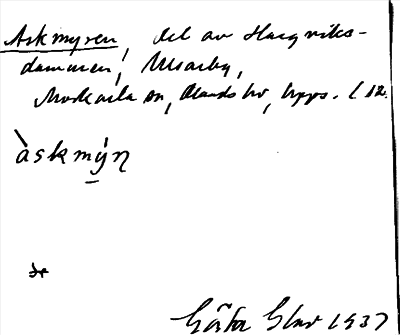 Askmyren, del av Hargviks-
dammen, Ulvarby,
Morkarla sn, Olands hd, Upps. l
àskmýn
Gösta Elar 1937